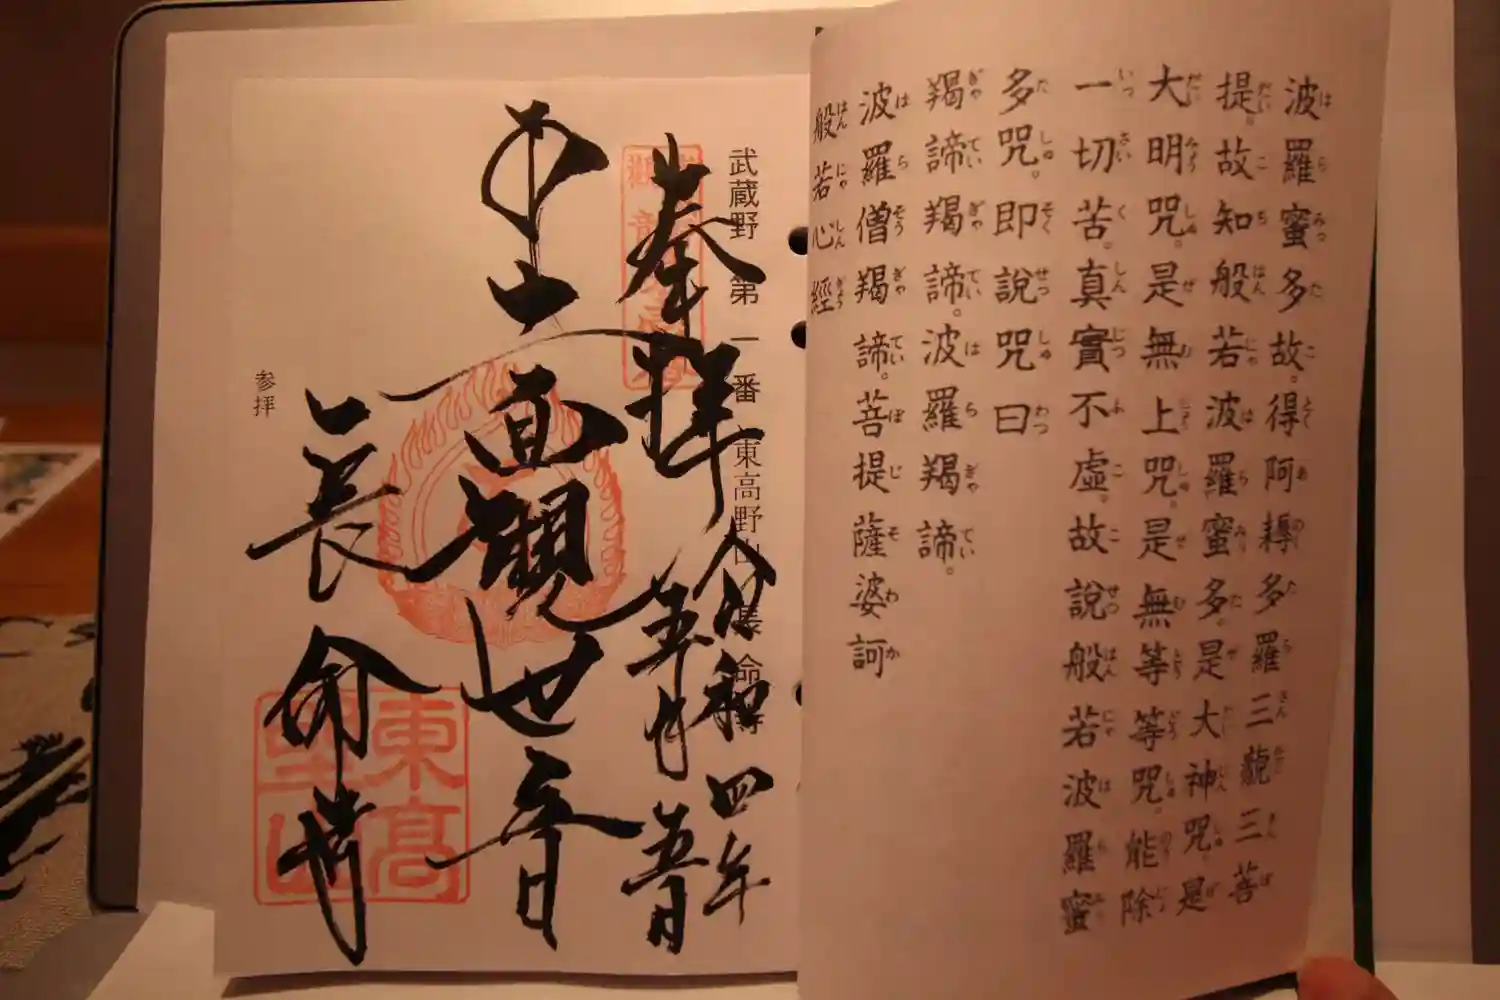 波羅蜜多故。得阿耨多羅三藐三菩
提。故知般若波羅蜜多。是大神咒。是
大明咒。是無上咒。是無等等咒。能除
一切苦。真實不虛。故說般若波羅蜜
多咒。即說咒曰
羯諦羯諦。波羅羯諦。
波羅僧羯諦。菩提薩婆訶
般若心經
武蔵野 第一番 東高野山 長命寺
奉拝 令和四年
五月五日
十一面観世音
長命寺
東高
野山
参拝